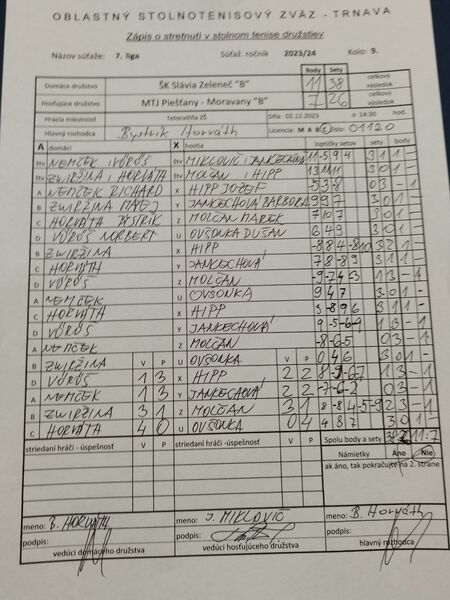 OBLASTNÝ STOLNOTENISOVÝ ZVÄZ - TRNAVA
Zápis o stretnutí v stolnom tenise družstiev
Názov súťaže: 7. liga Súťaž. ročník 2023/24 Kolo: 9.
Body Sety celkový
Domáce družstvo ŠK Slávia Zeleneč "B" 11 38 výsledok
Hosťujúce družstvo MTJ Piešťany - Moravany "B" 7 26 celkový výsledok
Hracia miestnosť Telocvičňa ZŠ Dňa: 02.12.2023 o 14:30 hod.
Hlavný rozhodca Bystrík Horváth Licencia: M A B C číslo: 01120
A domáci X hostia loptičky setov sety body
štv NEMČEK / VÖRÖŠ štv MIKLOVIČ / JANKECHOVÁ 11 -5 9 4 3 1 1 -
štv ZWIRŽINA / HORVÁTH štv MOLČAN / HIPP 13 11 11 3 0 1 -
A NEMČEK RICHARD X HIPP JOZEF -5 -3 -8 0 3 - 1
B ZWIRŽINA MATEJ Y JANKECHOVÁ BARBORA 9 9 7 3 0 1 -
C HORVÁTH BYSTRÍK Z MOLČAN MAREK 7 10 7 3 0 1 -
D VÖRÖŠ NORBERT U OVŠONKA DUŠAN 6 4 9 3 0 1 -
B ZWIRŽINA X HIPP -8 8 4 -8 10 3 2 1 -
C HORVÁTH Y JANKECHOVÁ 7 8 -8 9 3 1 1 -
D VÖRÖŠ Z MOLČAN 1 3 - 1
A NEMČEK U OVŠONKA 9 4 7 3 0 1 -
C HORVÁTH X HIPP 3 -8 9 6 3 1 1 -
D VÖRÖŠ Y JANKECHOVÁ 9 -5 -6 1 3 - 1
A NEMČEK Z MOLČAN -8 -6 -5 0 3 - 1
B ZWIRŽINA V P U OVŠONKA V P 0 4 6 3 0 1 -
D VÖRÖŠ 1 3 X HIPP 2 2 1 3 - 1
A NEMČEK 1 3 Y JANKECHOVÁ 2 2 0 3 - 1
B ZWIRŽINA 3 1 Z MOLČAN 3 1 8 -8 4 -5 -9 2 3 - 1
C HORVÁTH 4 0 U OVŠONKA 0 4 4 8 7 3 0 1 -
striedaní hráči - úspešnosť V P striedaní hráči - úspešnosť V P Spolu body a sety 11:7
Námietky Áno Nie
ak áno, tak pokračujte na 2. strane
meno: B. HORVÁTH meno: J. MIKLOVIČ meno: B. Horváth
podpis: podpis: podpis:
vedúci domáceho družstva vedúci hosťujúceho družstva hlavný rozhodca